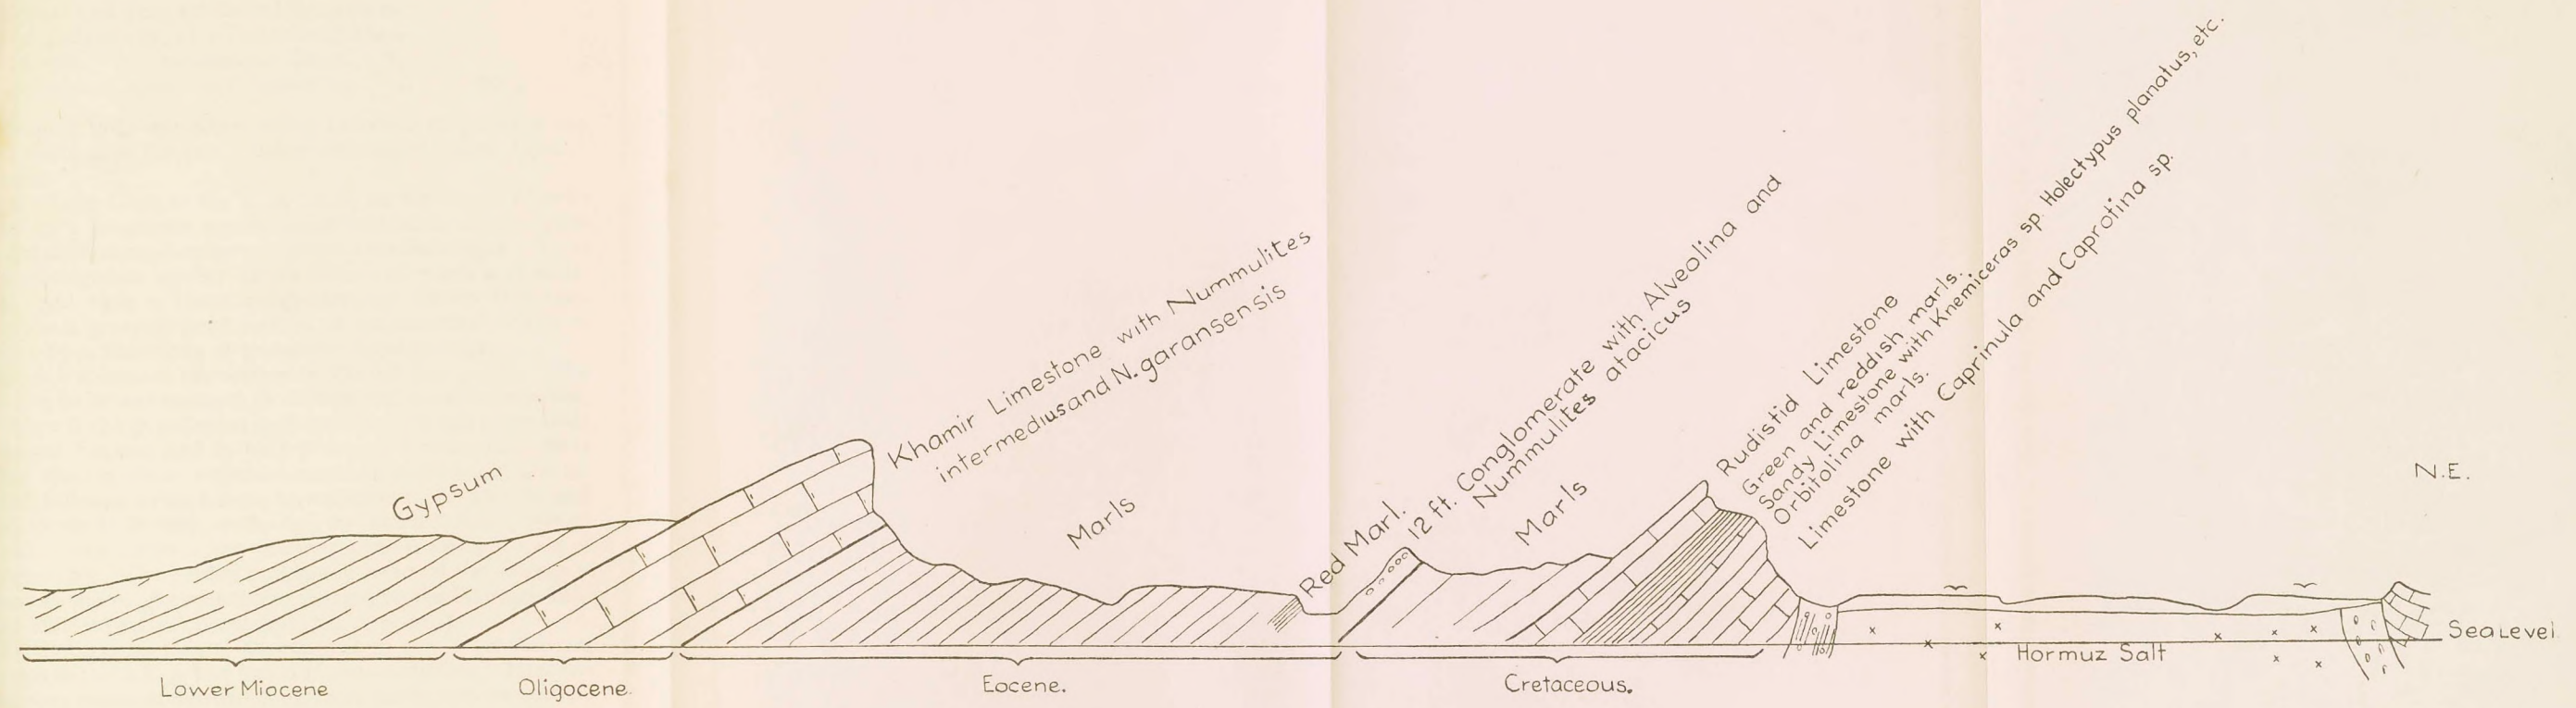 Gypsum
Khamir Limestone with Nummulites
intermedius and N. garansensis
Marls
Red Marl.
12 ft. Conglomerate with Alveolina and
Nummulites atacicus
Marls
Rudistid Limestone
Green and reddish marls.
Sandy Limestone with Knemiceras sp. Holectypus planatus, etc.
Orbitolina marls.
Limestone with Caprinula and Caprotina sp.
N.E.
Sea Level
Hormuz Salt
Lower Miocene
Oligocene.
Eocene.
Cretaceous.